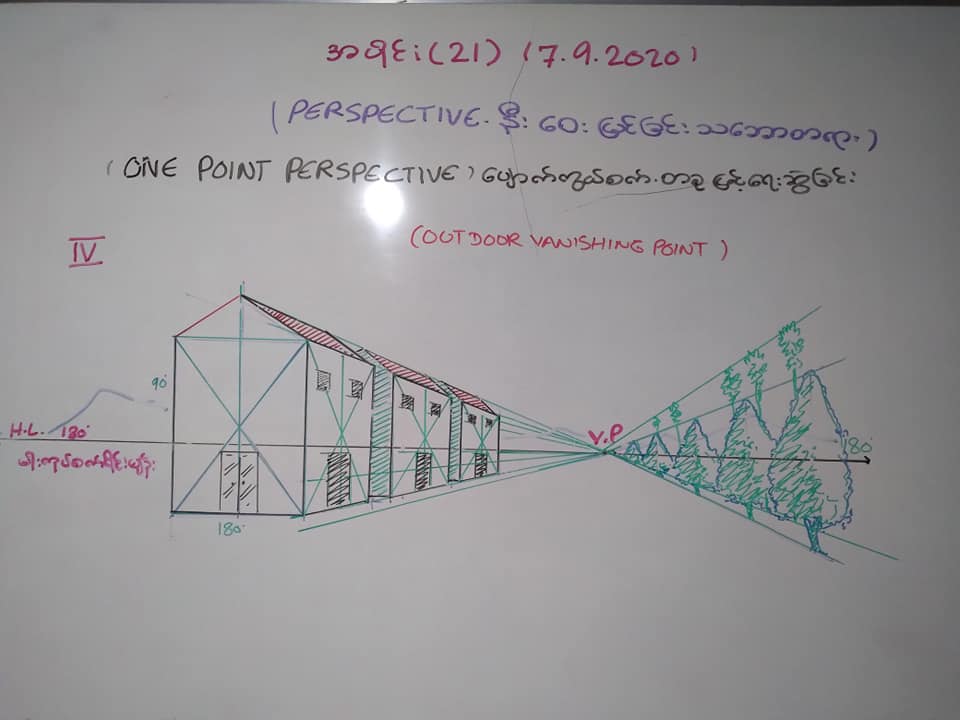 အပိုင်း (21) (7.9.2020)
(PERSPECTIVE. နီး ဝေး မြင်ခြင်း သဘောတရား)
(ONE POINT PERSPECTIVE) ပျောက်ကွယ်စက်.တခု ဖြင့်ရေးဆွဲခြင်း
(OUTDOOR VANISHING POINT)
IV
90°
H.L. 180°
V.P
180°
180°